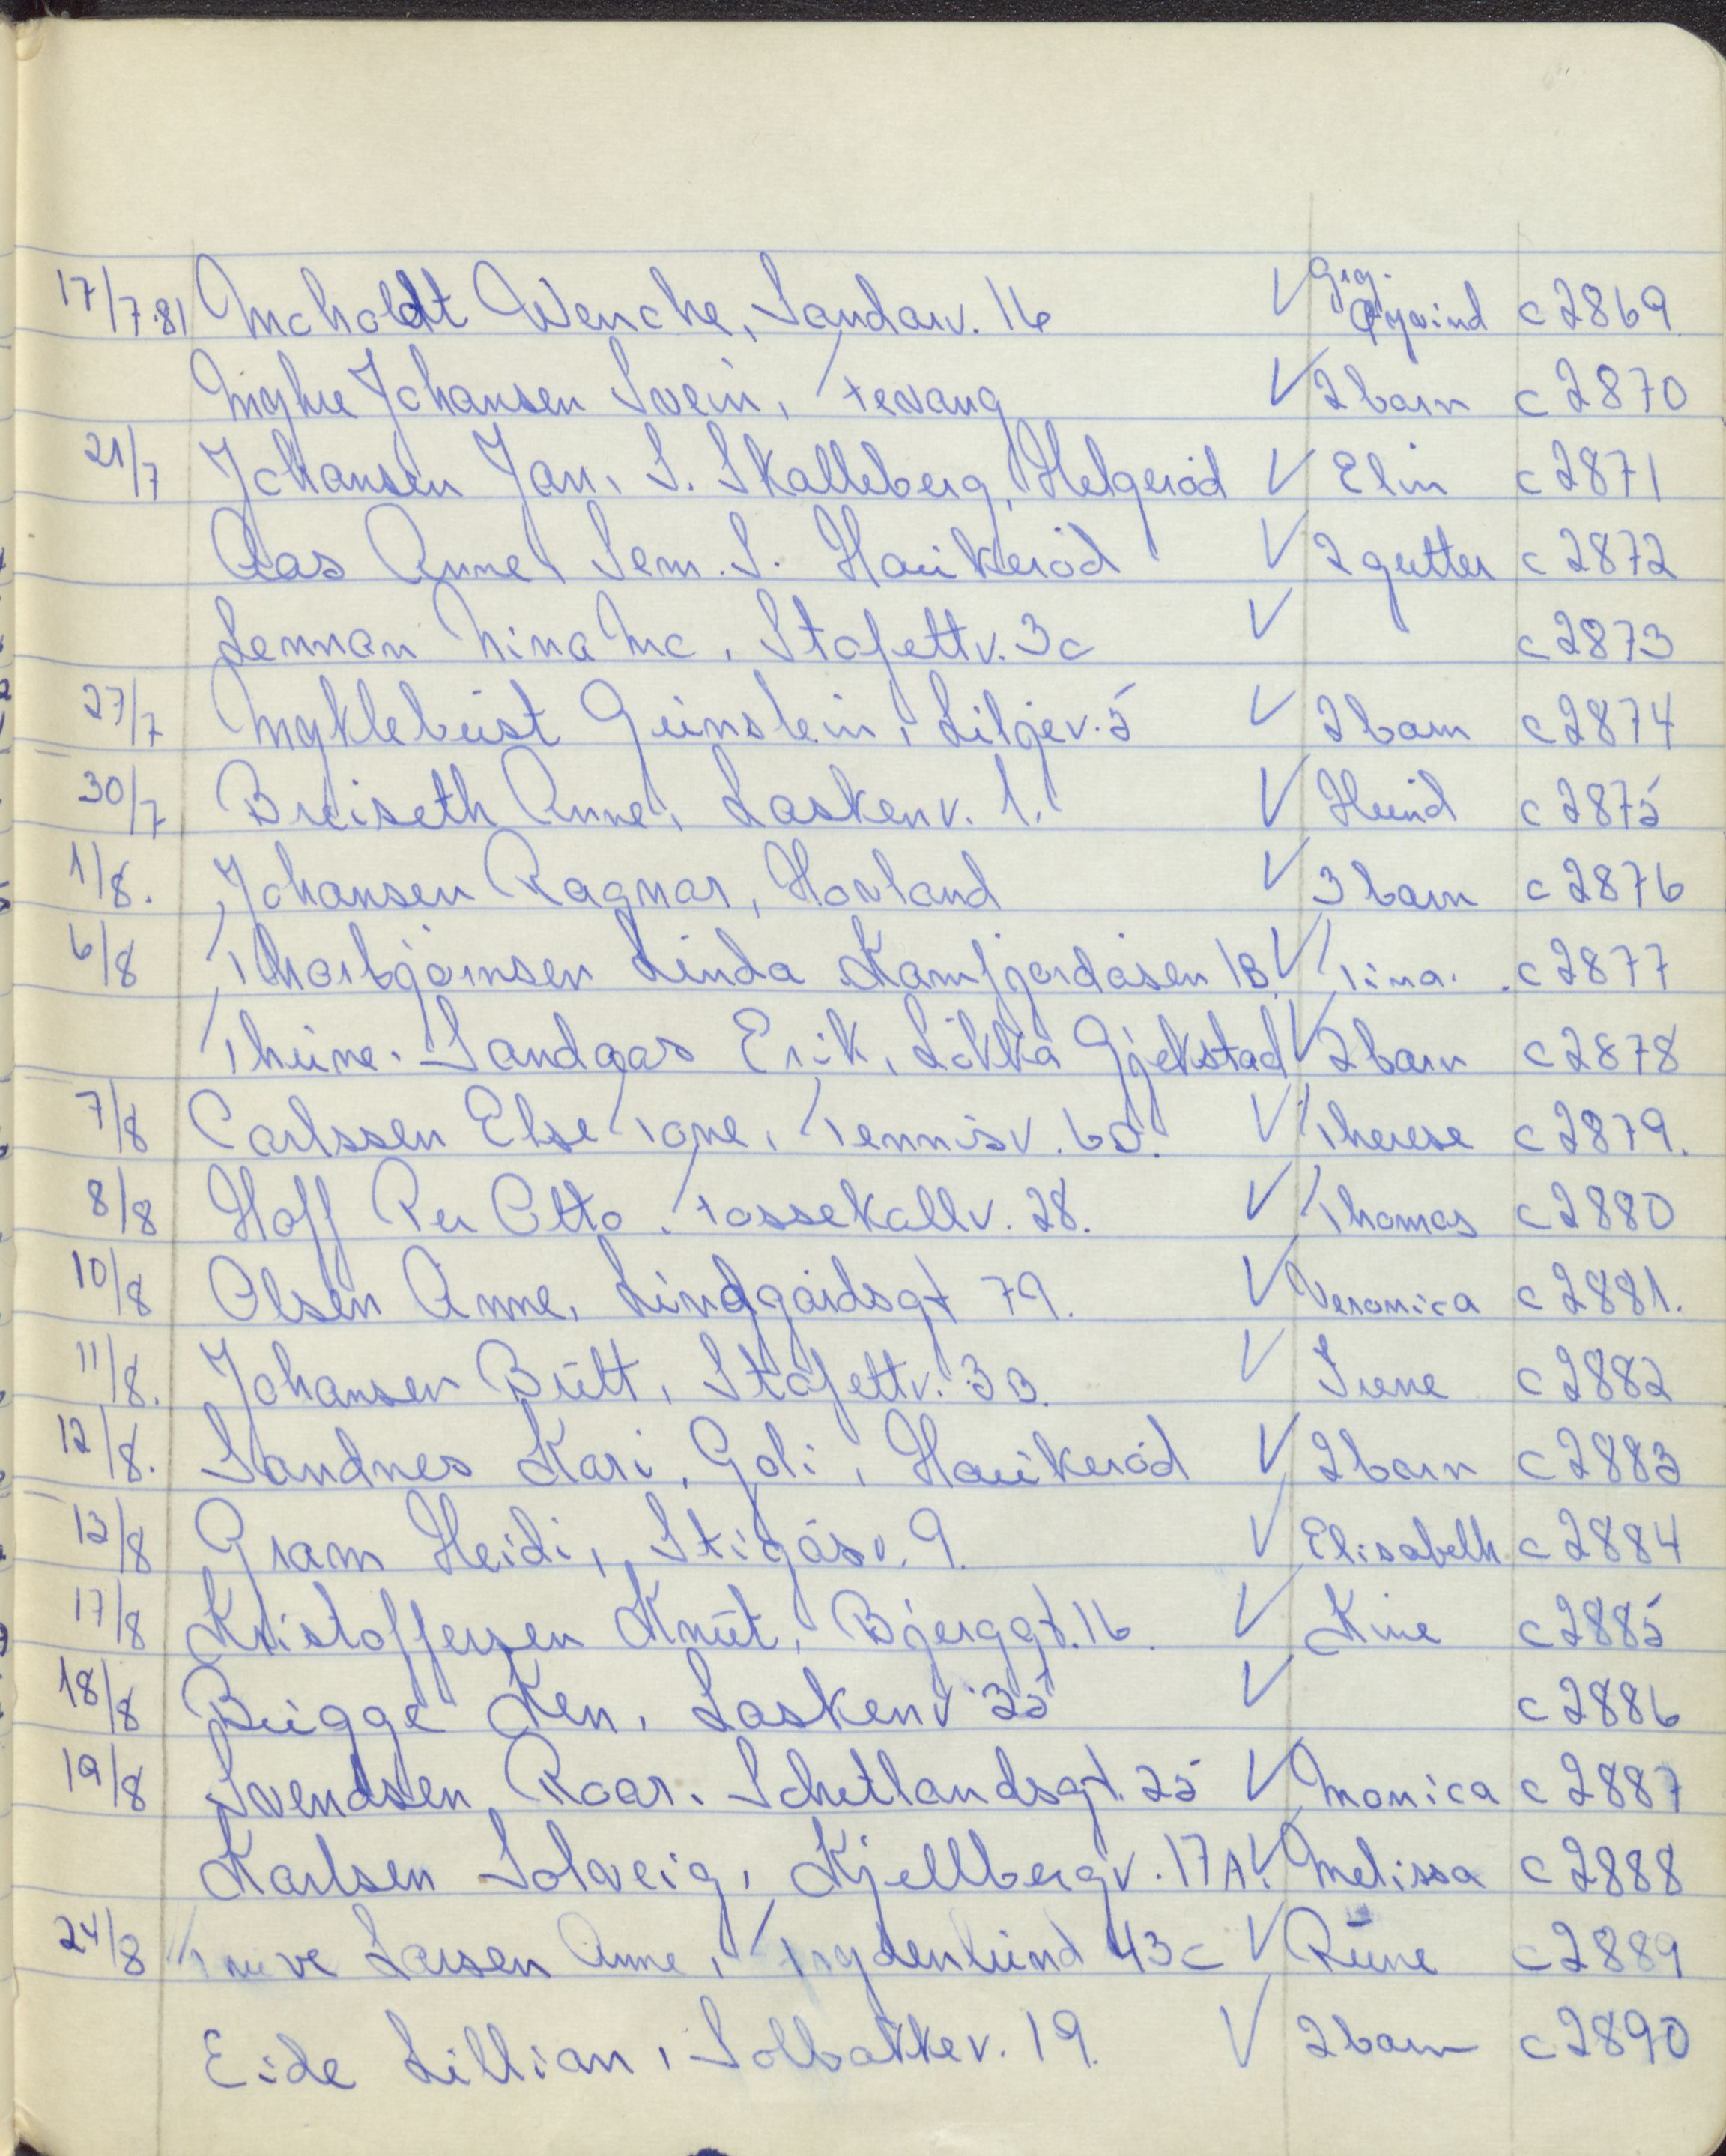 17/7.81 Moholdt Wenche, Sandarv. 16 √ Gry. Øyvind c 2869.
Myhre Johansen Svein, Fevang √ 2 barn c 2870
21/7 Johansen Jan, S. Skalleberg, Helgeröd √ Elin c 2871
Aas Anne, Sem. S. Haukeröd √ 2 gutter c 2872
Lennan Nina Mc, Stafettv. 3c √ c 2873
27/7 Myklebust Geinstein, Liljev. 5 √ 2 barn c 2874
30/7 Breiseth Anne, Laskenv. 1. √ c 2875
1/8. Johansen Ragnar, Hovland √ 3 barn c 2876
6/8 Thorbjørnsen Linda Kamfjordåsen 1B. √ Tina. c 2877
Thune-Sandaas Erik, Løkka Gjekstad √ 2 barn c 2878
7/8 Carlssen Else Tone, Tennisv. 6D. √ Therese c 2879.
8/8 Hoff Per Otto. Fossekallv. 28. √ Thomas c 2880
10/8 Olsen Anne, Lindgårdsgt 79. √ Veronica c 2881.
11/8. Johansen Britt, Stafettv. 3B. √ Irene c 2882
12/8. Sandnes Kari, Goli, Haukeröd √ 2 barn c 2883
13/8 Gram Heidi, Stigåsv. 9. √ Elisabeth c 2884
17/8 Kristoffersen Knut, Bjerggt. 16. √ Kine c 2885
18/8 Bugge Ken, Laskenv 35 √ c 2886
19/8 Svendsen Roar. Schetlandsgt. 25 √ Monica c 2887
Karlsen Solveig, Kjellbergv. 17A. √ Melissa c 2888
24/8 Larsen Anne, Frydenlund 43c √ Rune c 2889
Eide Lillian, Solbakkev. 19. √ 2 barn c 2890